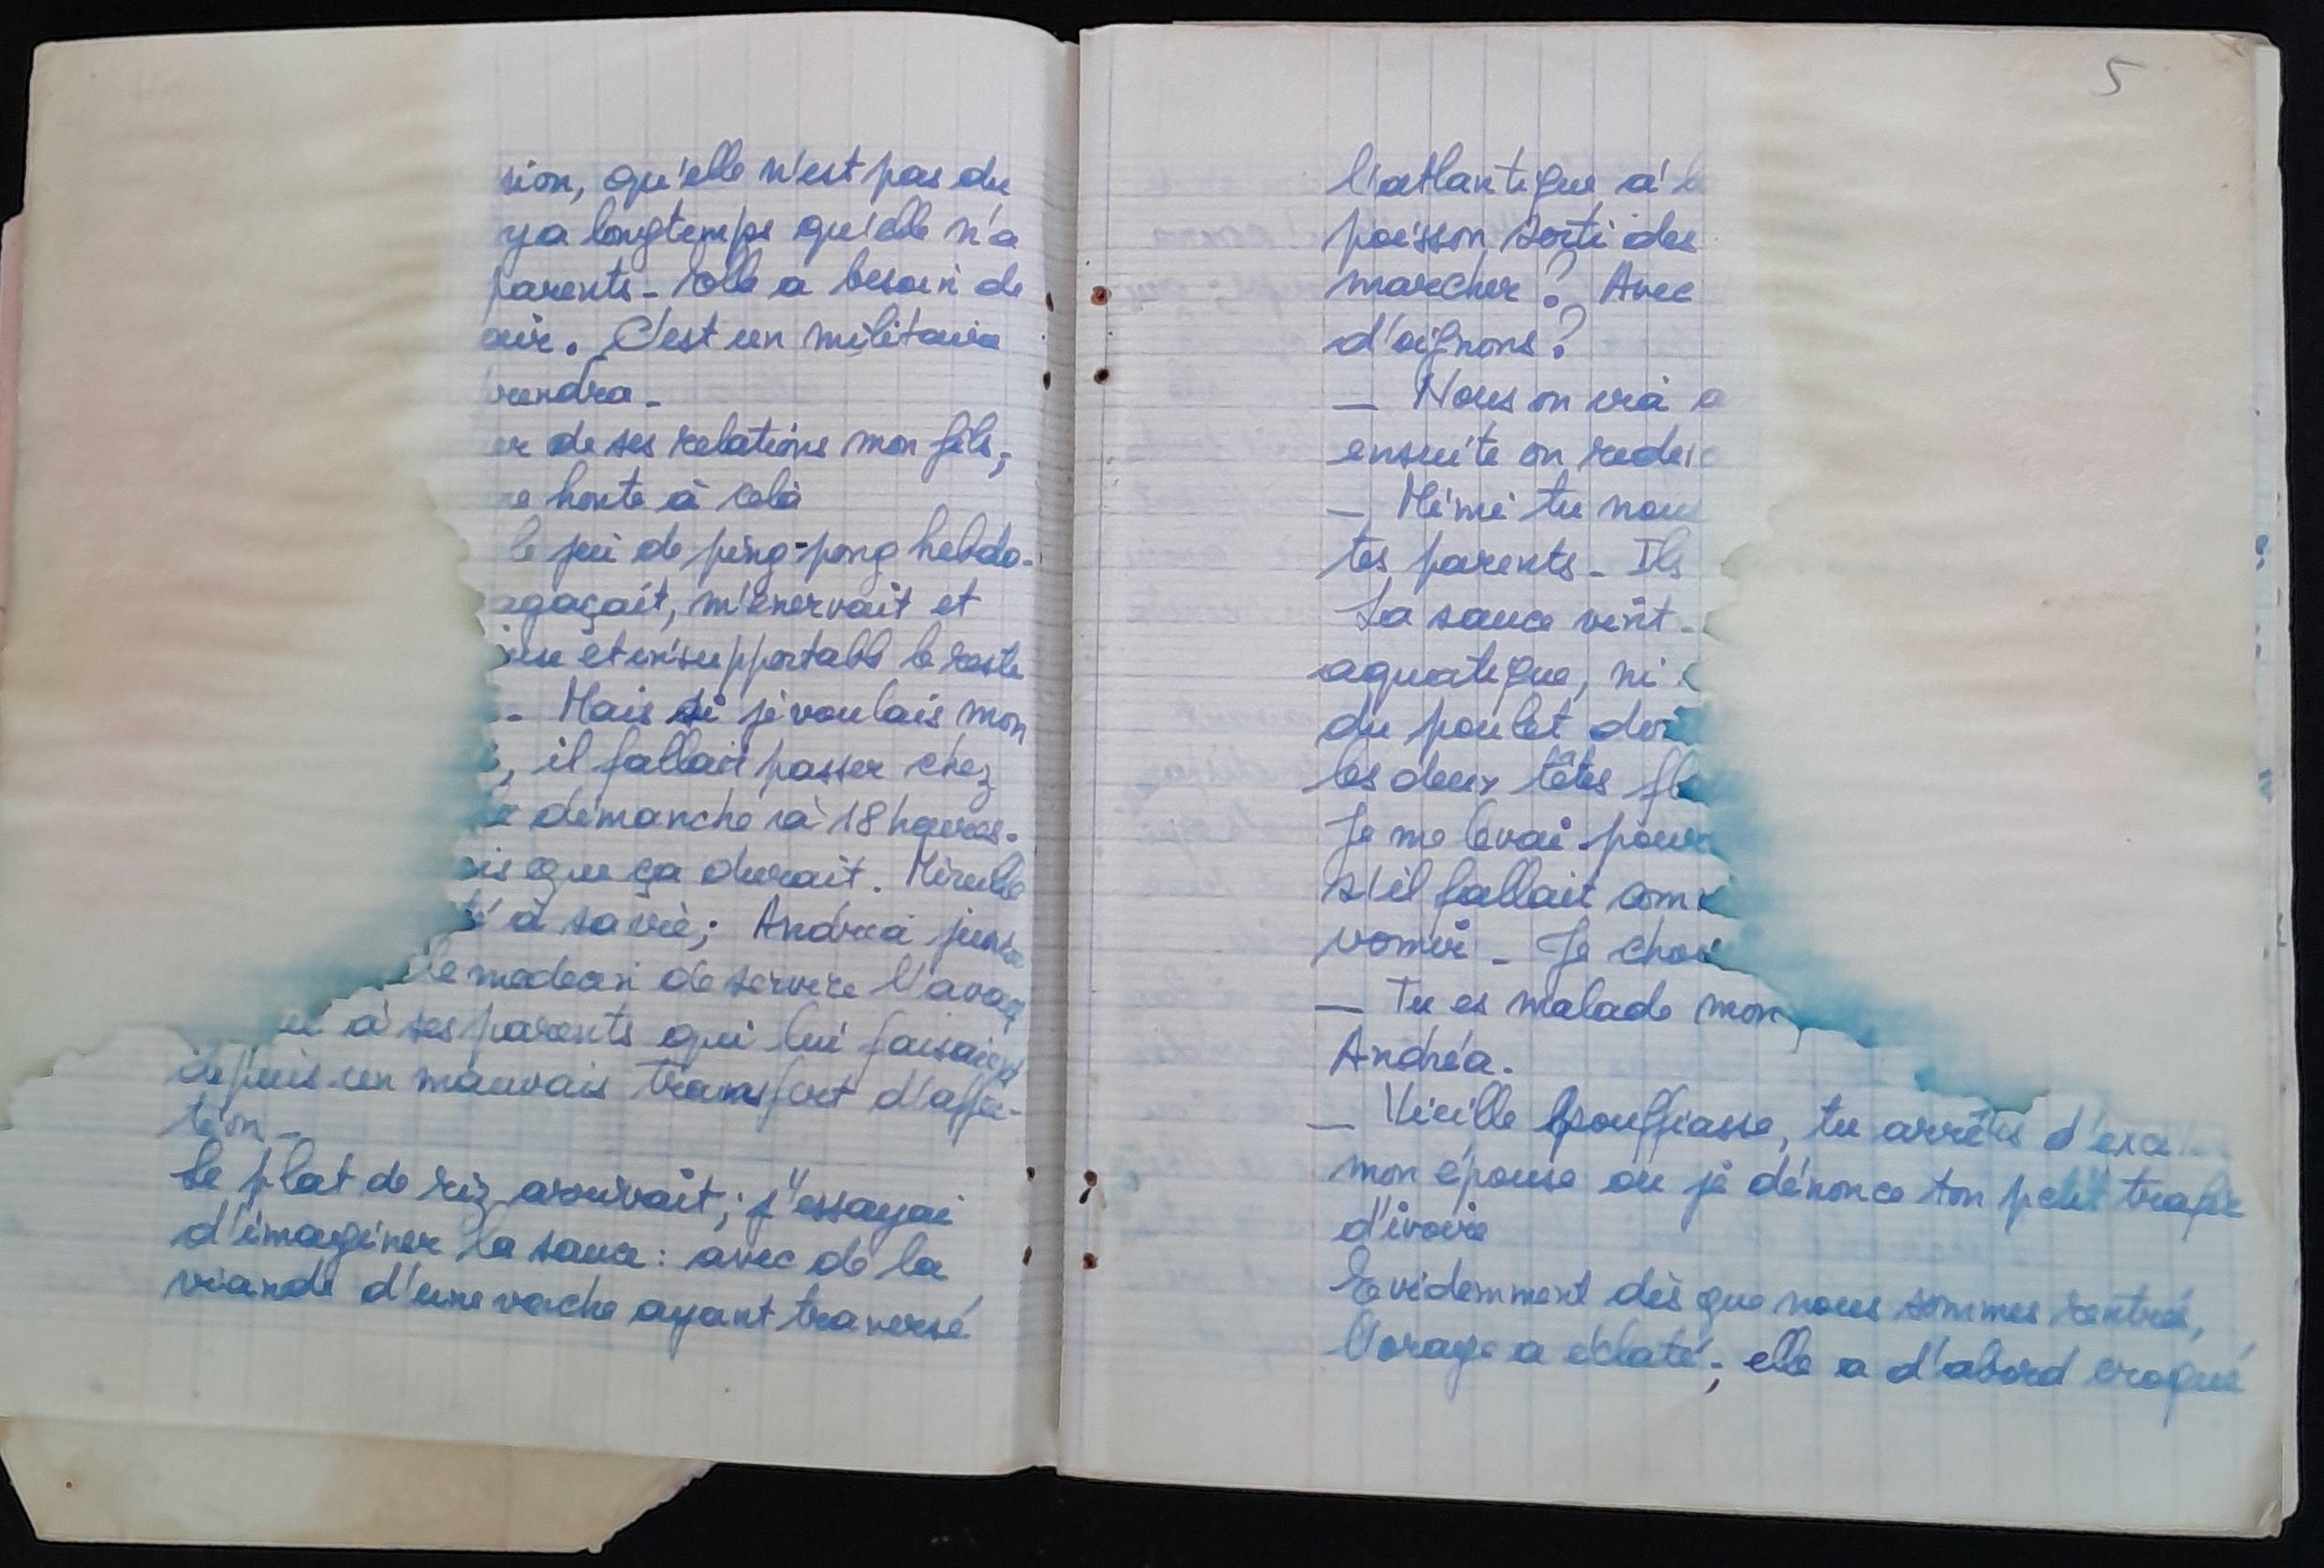 sion, qu'elle n'est pas du
y a longtemps qu'elle n'a
parents - elle a besoin de
C'est un militaire
de ses relations mon fils;
honte à celà
le jeu de ping-pong hebdo-
agaçait, m'énervait et
et insupportable le reste
. Mais si je voulais mon
, il fallait passer chez
dimanche à 18 heures.
que ça durait. Mireille
à sa vie; Andréa
le medecin de service l'avait
à ses parents qui lui faisaient
depuis un mauvais transfert d'affec-
tion -
Le plat de riz arrivait; j'essayai
d'imaginer la sauce : avec de la
viande d'une vache ayant traversé
5
l'atlantique à
poisson sorti des
marcher ? Avec
d'oignons ?
— Nous on ira
ensuite on
— Mimi tu
tes parents - Ils
La sauce vint -
aquatique, ni
du poulet
les deux têtes
Je me levai pour
s'il fallait
vomir - Je
— Tu es malade mon
Andréa.
— Vieille pouffiasse, tu arrêtes
mon épouse ou je dénonce ton petit trafic
d'ivoire
Evidemment dès que nous sommes rentrés,
l'orage a éclaté; elle a d'abord craqué